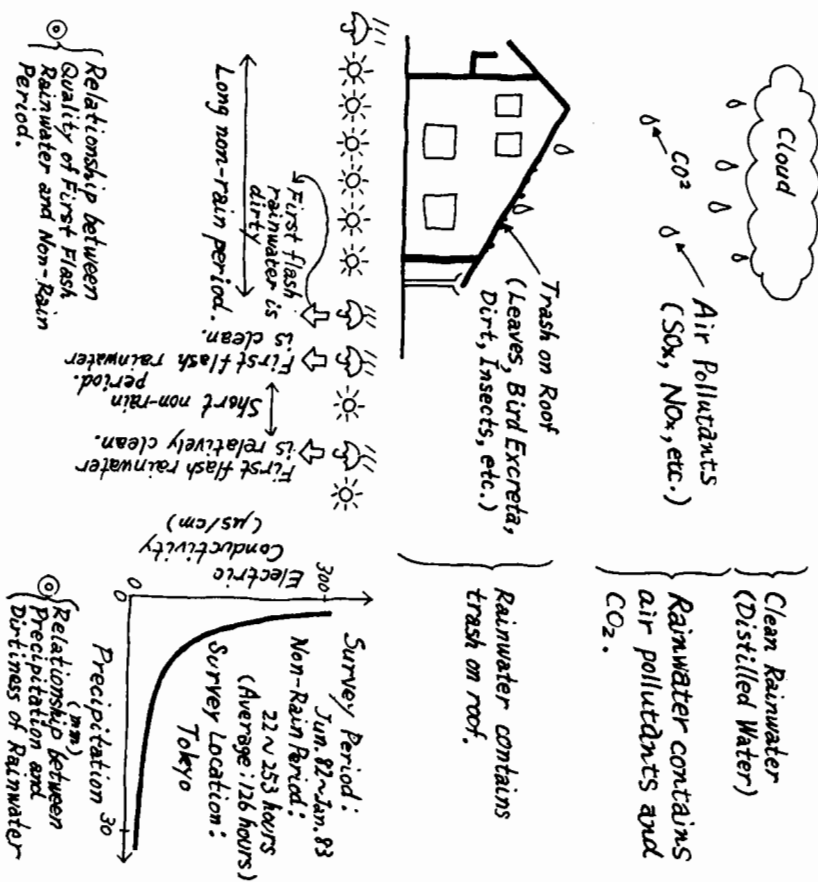 Cloud
CO²
Air Pollutants
(SOx, NOx, etc.)
Clean Rainwater
(Distilled Water)
Rainwater contains
air pollutants and
CO₂.
Trash on Roof
(Leaves, Bird Excreta,
Dirt, Insects, etc.)
Rainwater contains
trash on roof.
Long non-rain period.
First flash
rainwater is
dirty
First flash rainwater
is clean.
Short non-rain
period.
First flash rainwater
is relatively clean.
◎ Relationship between
Quality of First Flash
Rainwater and Non-Rain
Period.
Electric
Conductivity
(μs/cm)
300
0
0
Precipitation 30
(mm)
Survey Period:
Jum. 82~Jan. 83
Non-Rain Period:
22~253 hours
(Average: 126 hours)
Survey Location:
Tokyo
◎ Relationship between
Precipitation and
Dirtiness of Rainwater